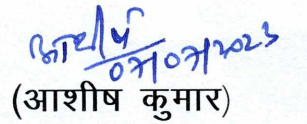 आशीष
07/07/2023
(आशीष कुमार)